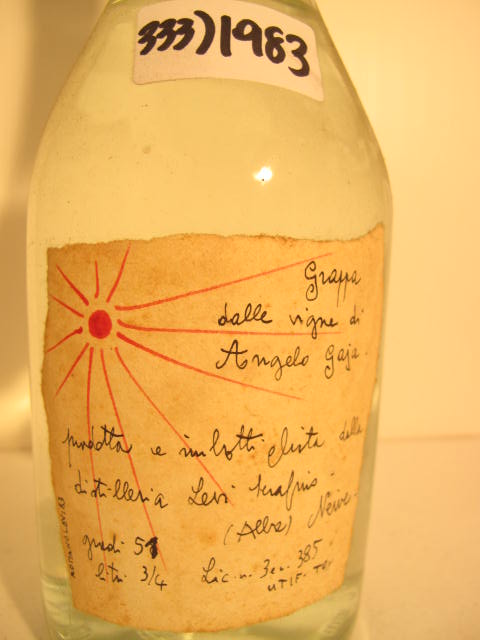 333)1983
Grappa
dalle vigne di
Angelo Gaja.
prodotta e imbottigliata dalla
distilleria Levi Serafino.
(Alba) Neive.
gradi 51
litri 3/4
Lic. n. 3 e n. 385
UTIF. TO.